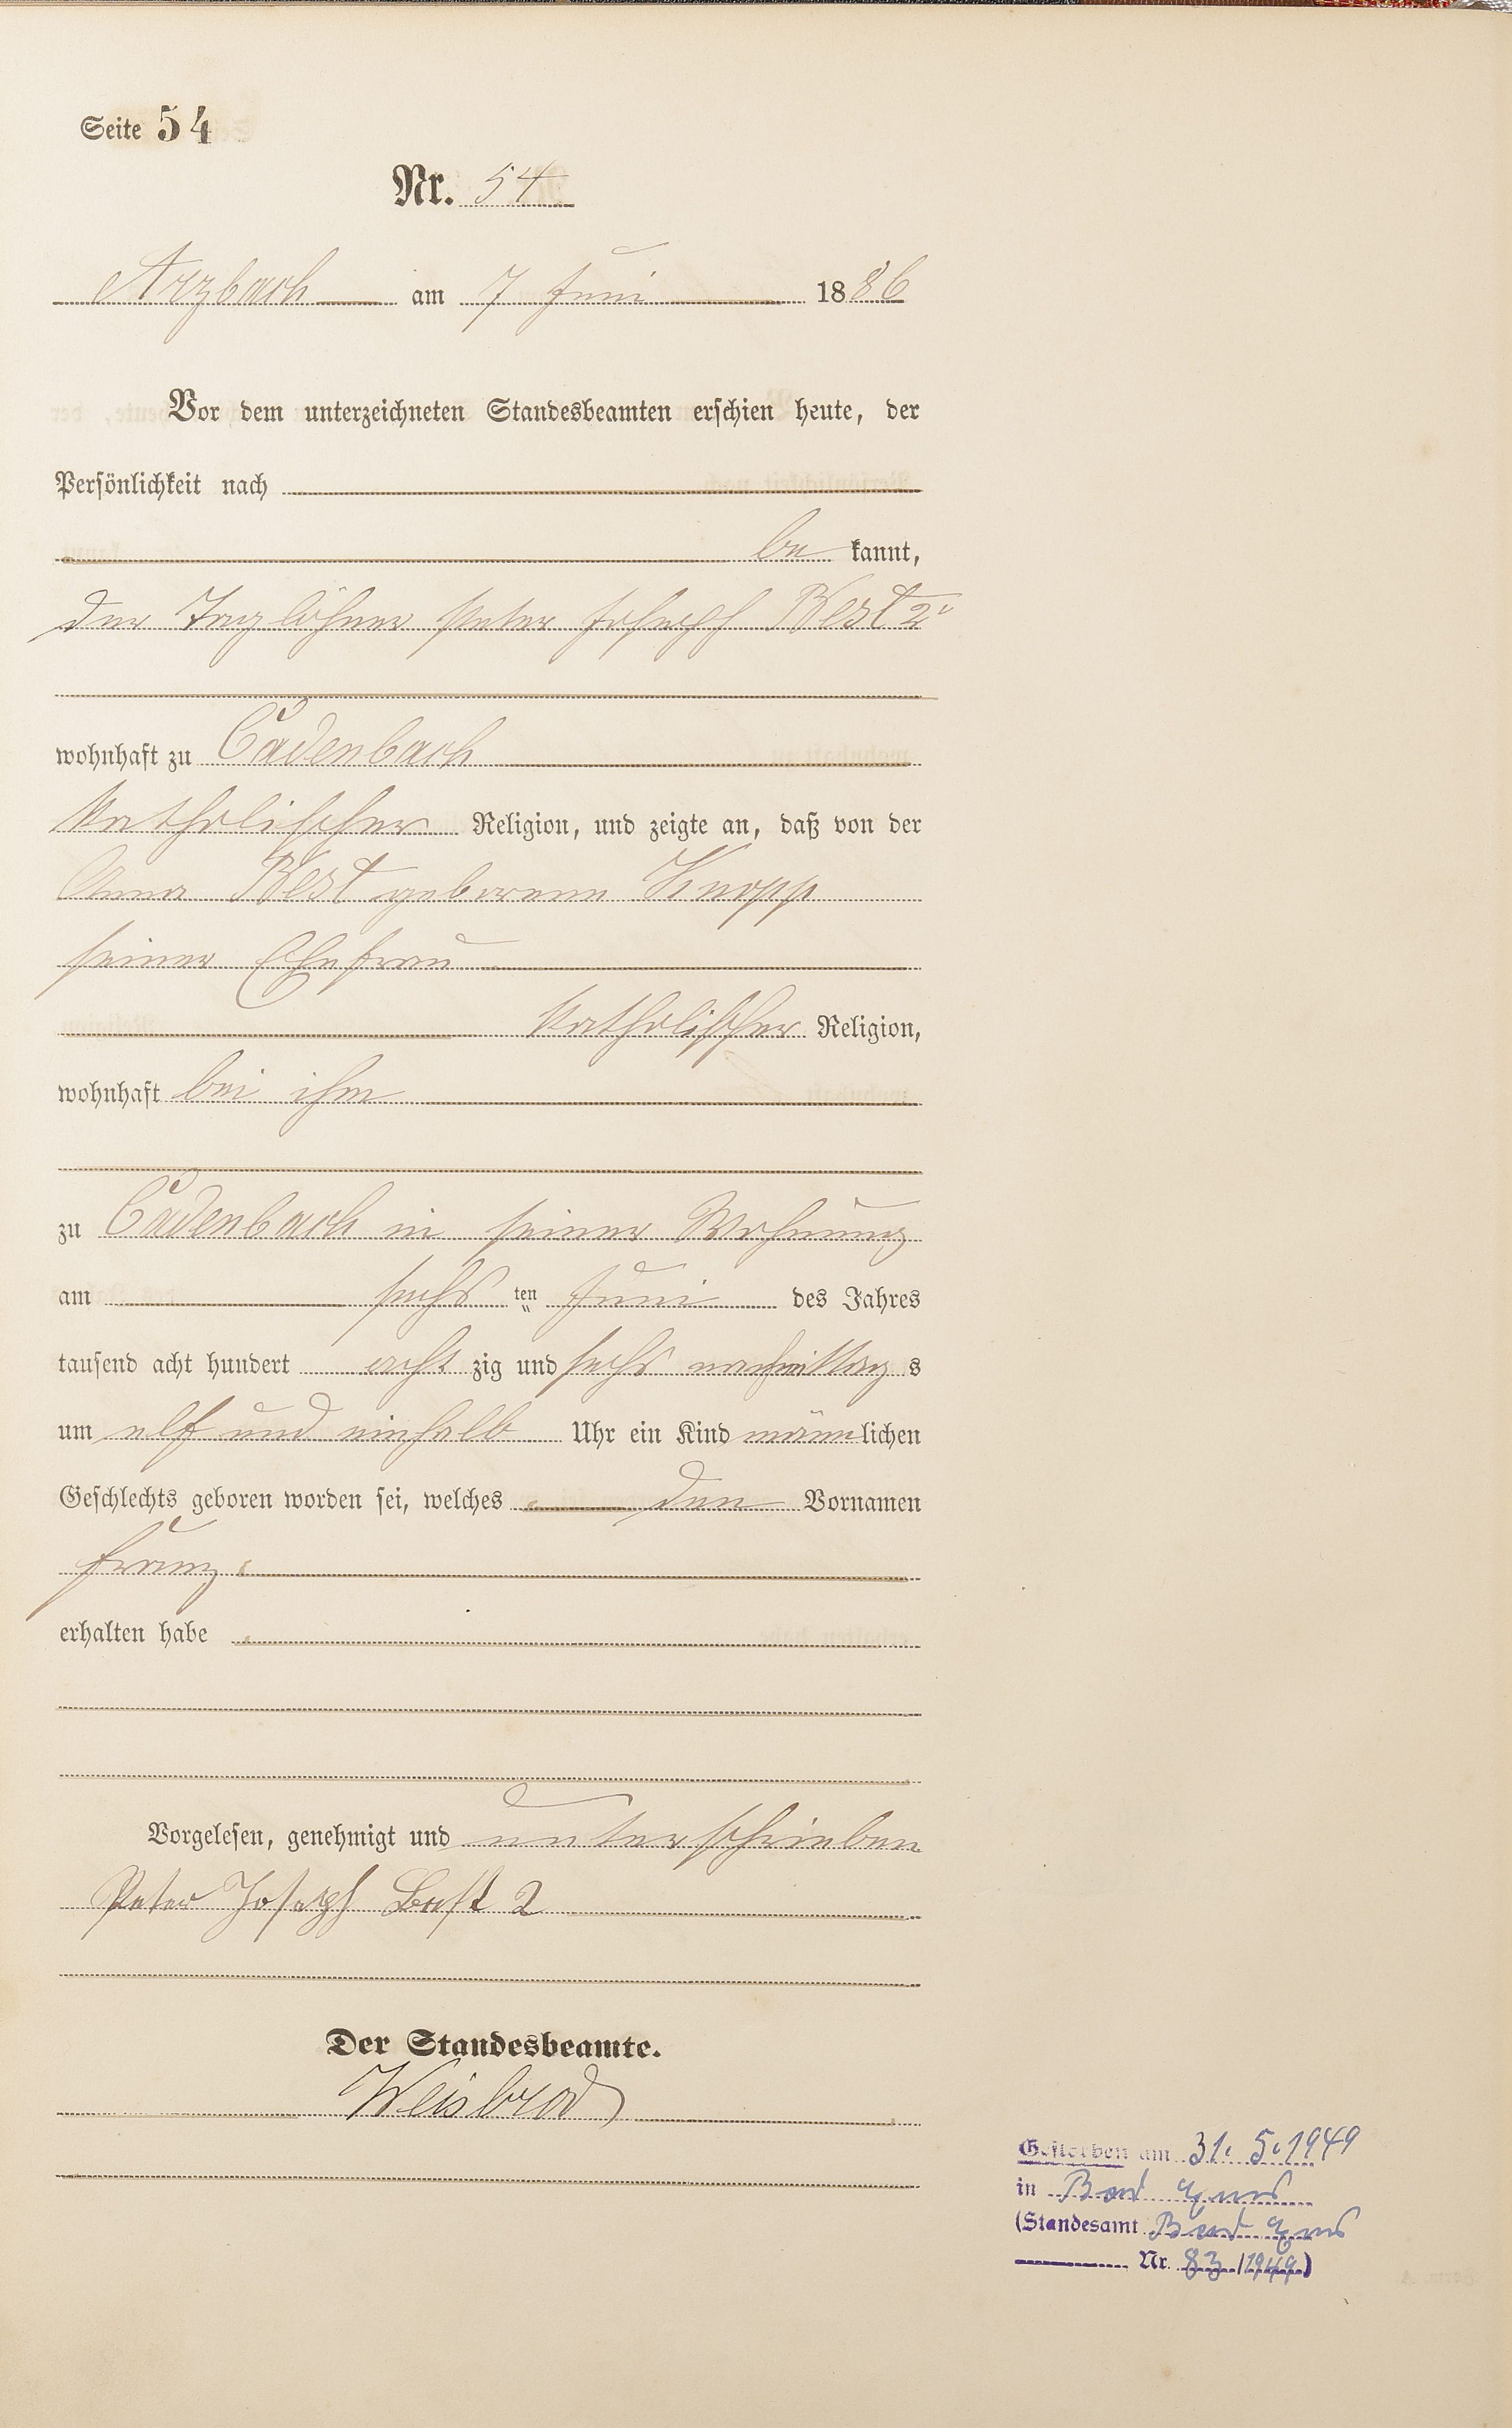 Seite 54
Nr. 54
Arzbach am 7 Juni 1886
Vor dem unterzeichneten Standesbeamten erschien heute, der
Persönlichkeit nach
be kannt,
der Taglöhner Peter Joseph Best 2r
wohnhaft zu Cadenbach
katholischer Religion, und zeigte an, daß von der
Anna Best geborene Knopp
seiner Ehefrau
katholischer Religion,
wohnhaft bei ihm
zu Cadenbach in seiner Wohnung
am sechs ten Juni des Jahres
tausend acht hundert acht zig und sechs nachmittag s
um elf und einhalb Uhr ein Kind männlichen
Geschlechts geboren worden sei, welches den Vornamen
Franz
erhalten habe
Vorgelesen, genehmigt und unterschrieben
Peter Joseph Best 2
Der Standesbeamte.
Weisbrod
Gestorben am 31. 5. 1949
in Bad Ems
(Standesamt Bad Ems
Nr. 83/1949)